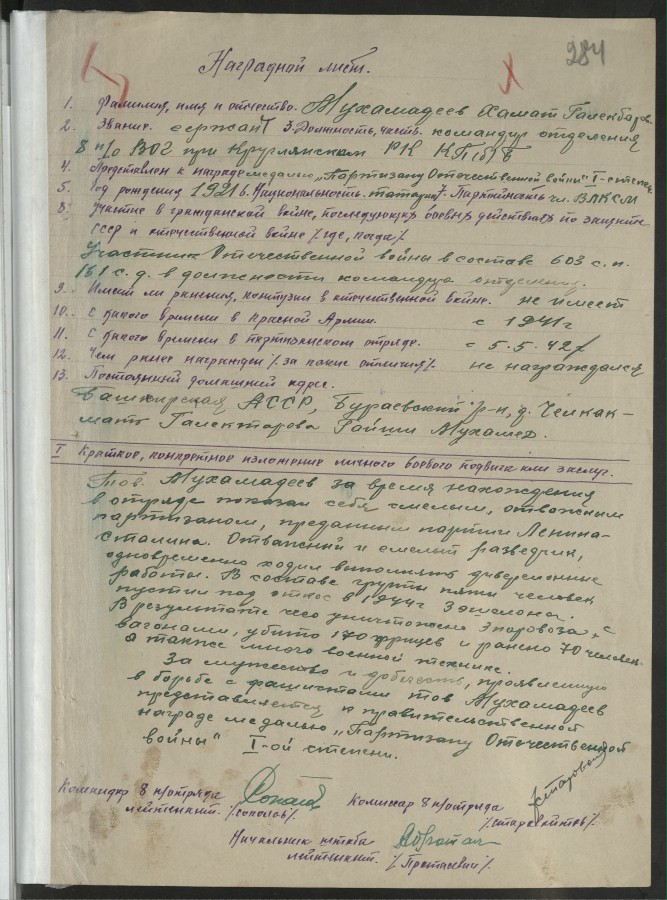 284
Наградной лист.
1. Фамилия, имя и отчество. Мухамадеев Хамат Галекбаров.
2. Звание. сержант 3. Должность, часть. командир отделения
8 п/о ВОГ при Круглянском РК КП(б)Б
4. Представлен к награде медалью "Партизану Отечественной войны" I-степен.
5. Год рождения 1921 6. Национальность. татарин 7. Партийность чл. ВЛКСМ
8. Участие в гражданской войне, последующих боевых действиях по защите
СССР и отечественной войне /где, когда/
Участник Отечественной войны в составе 603 с.п.
161 с.д. в должности командира отделения.
9. Имеет ли ранения, контузии в отечественной войне. не имеет
10. С какого времени в Красной Армии. с 1941 г
11. С какого времени в партизанском отряде. с 5.5.42 г
12. Чем ранее награжден /за какие отличия/. не награждался
13. Постоянный домашний адрес.
Башкирская АССР, Бураевский р-н, д. Челкак-
мат Галектарова Файши Мухамед.
I Краткое, конкретное изложение личного боевого подвига или заслуг.
Тов. Мухамадеев за время нахождения
в отряде показал себя смелым, отважным
партизаном, преданным партии Ленина-
Сталина. Отважный и смелый разведчик,
одновременно ходил выполнять диверсионные
работы. В составе группы пяти человек
пустил под откос в 1944г 3 эшелона.
В результате чего уничтожено 3 паровоза, с
вагонами, убито 170 фрицев и ранено 70 человек
а также много военной техники.
За мужество и доблесть, проявленную
в борьбе с фашистами тов Мухамадеев
представляется к правительственной
награде медалью "Партизану Отечественной
войны" I-ой степени.
Командир 8 п/отряда
лейтенант. /Соколов/.
Комиссар 8 п/отряда
/Старовойтов/.
Начальник штаба
лейтенант. /Протасевич/.